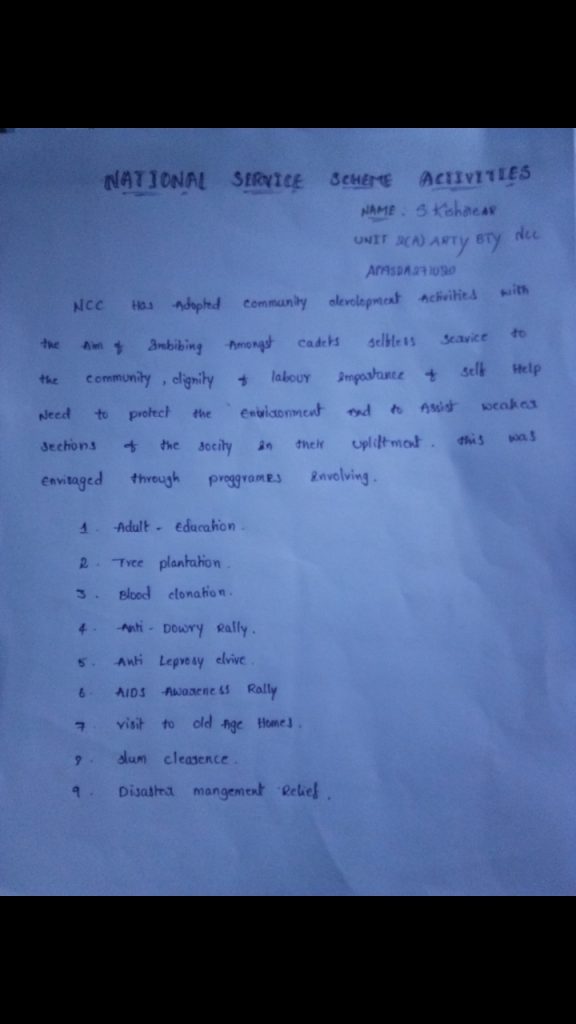 NATIONAL SERVICE SCHEME ACTIVITIES
NAME : S. Kishore AR
UNIT 2(A) ARTY BTY NCC
NCC Has Adopted community development Activities with
the Aim of Imbibing Amongst cadets selbless service to
the community, dignity of labour importance of self Help
Need to protect the environment and to Assist weaker
sections of the socity in their upliftment. this was
envisaged through proggrames involving.
1. Adult - education.
2. Tree plantation.
3. Blood donation.
4. Anti - Dowry Rally.
5. Anti Leprosy drive.
6. AIDS Awareness Rally
7. visit to old Age Homes.
8. slum clearence.
9. Disaster mangement Relief.